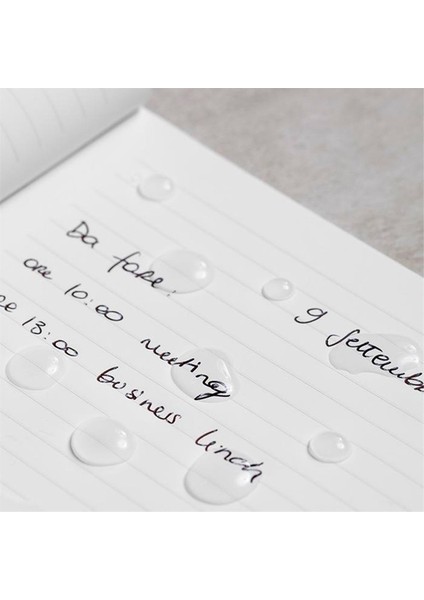 9 Settemb
Da fare:
ore 10:00 meeting
re 13:00 business lunch